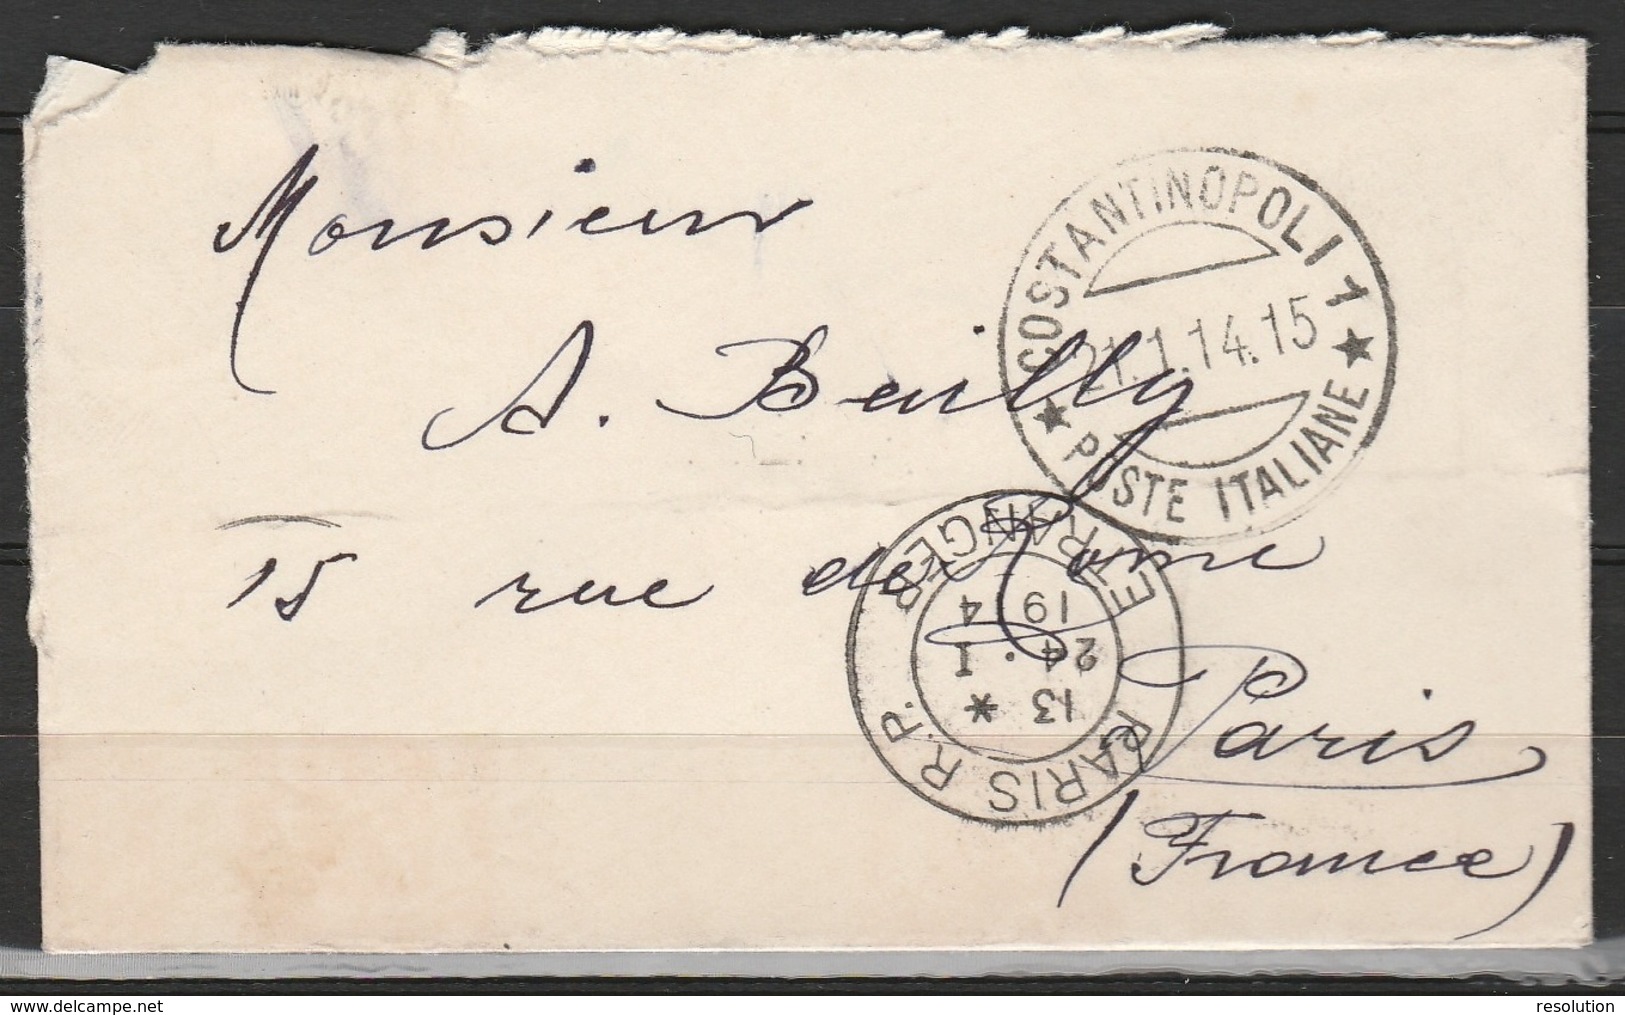 Monsieur
A. Beilly
15 rue de Rome
Paris
(France)
COSTANTINOPOLI 1
21.1.14.15
★ POSTE ITALIANE ★
PARIS R.P.
ETRANGER
13 *
24 . I
19 14
delcampe.net
resolution